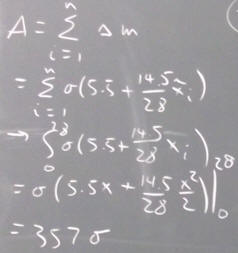 A = n Σ i=1 Δm
= n Σ i=1 σ(5.5 + 14.5/28 xᵢ)
→ ∫₀²⁸ σ(5.5 + 14.5/28 xᵢ)
= σ(5.5x + 14.5/28 x²/2)|₀²⁸
= 357σ